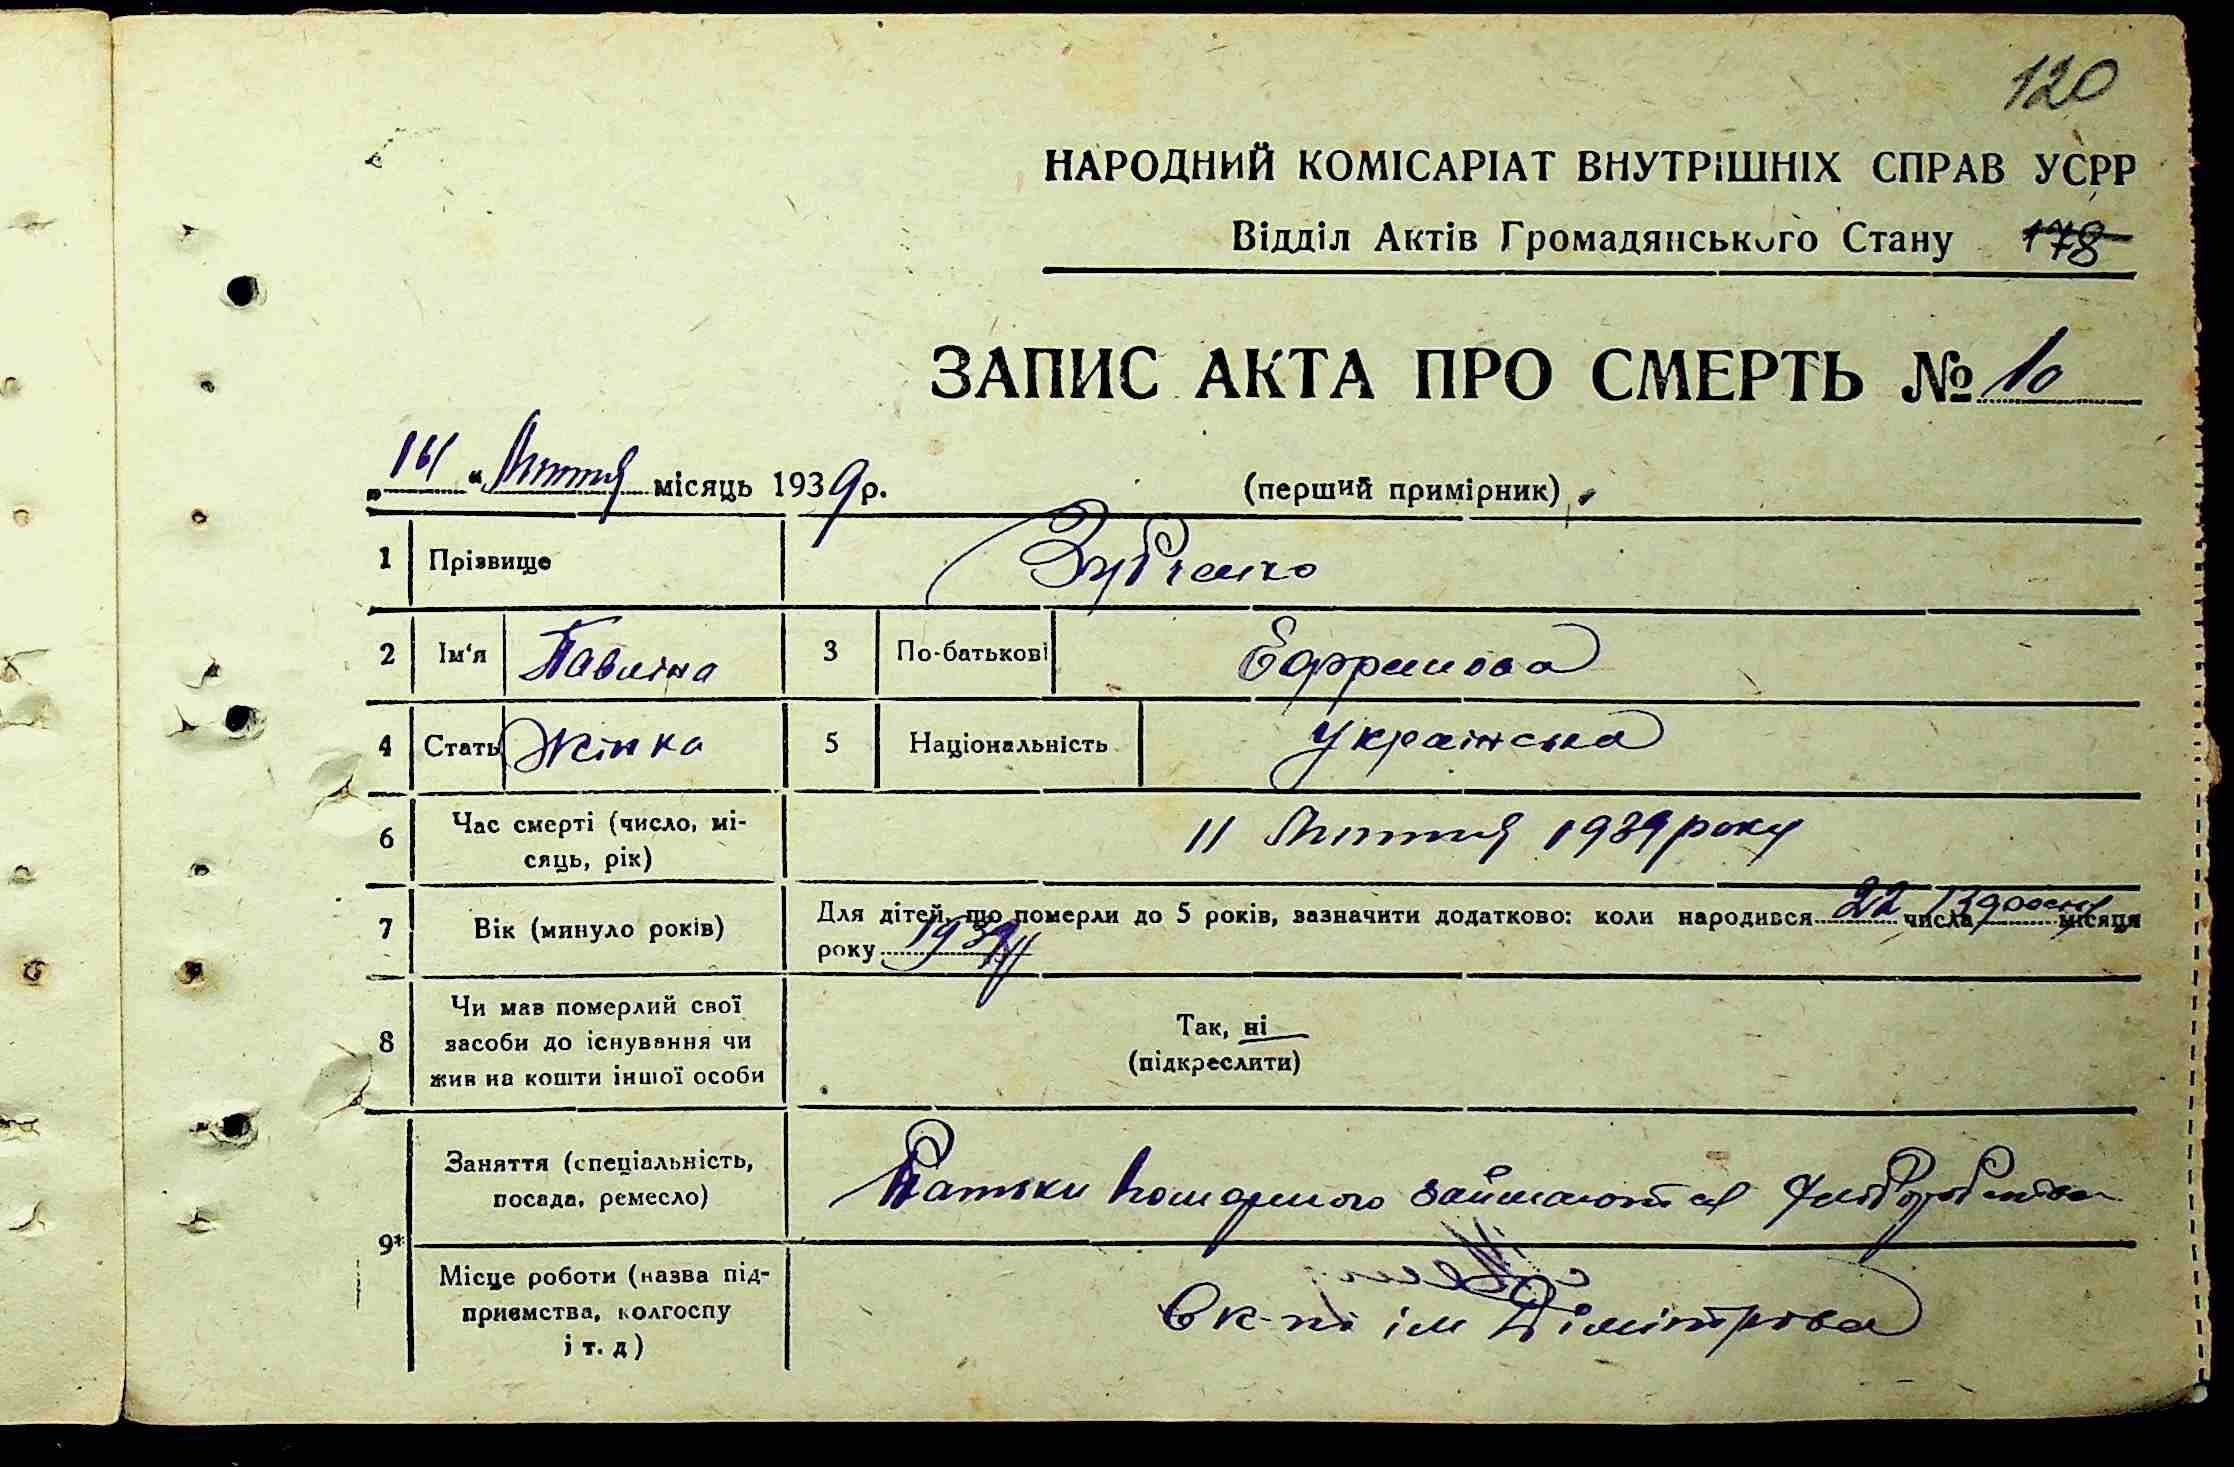 120
НАРОДНИЙ КОМІСАРІАТ ВНУТРІШНІХ СПРАВ УСРР
Відділ Актів Громадянського Стану 178
ЗАПИС АКТА ПРО СМЕРТЬ № 10
„14“ Лютня місяць 1939 р. (перший примірник)
1 Прізвище Зубченко
2 Ім'я Павліна 3 По-батькові
4 Стать Жінка 5 Національність Українська
6 Час смерті (число, мі-
сяць, рік) 11 Лютня 1939 року
7 Вік (минуло років) Для дітей, що померли до 5 років, зазначити додатково: коли народився 22 числа місяця
року 1939
8 Чи мав померлий свої
засоби до існування чи
жив на кошти іншої особи
Так, ні
(підкреслити)
9* Заняття (спеціальність,
посада, ремесло) Батьки займаются
Місце роботи (назва під-
приємства, колгоспу
і т. д) ім Дімітрова